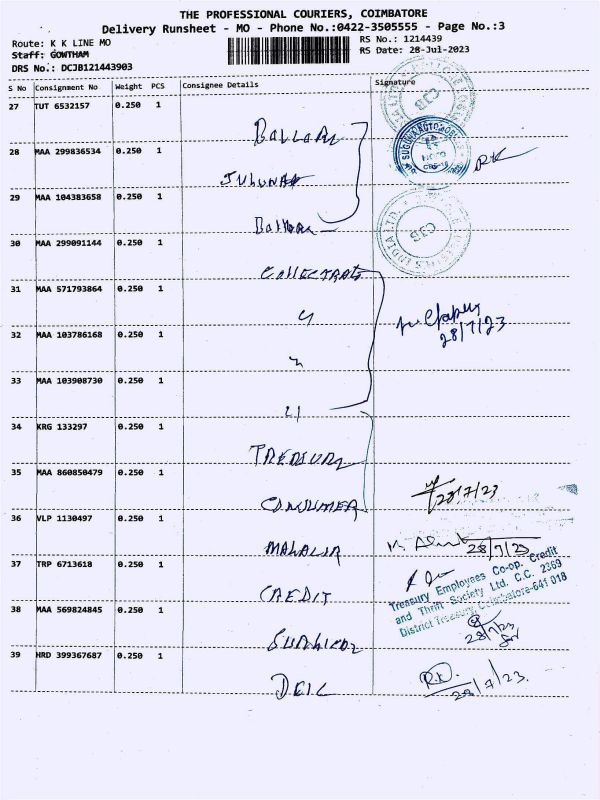 THE PROFESSIONAL COURIERS, COIMBATORE
Delivery Runsheet - MO - Phone No.:0422-3505555 - Page No.:3
Route: K K LINE MO
RS No.: 1214439
Staff: GOWTHAM
RS Date: 28-Jul-2023
DRS No.: DCJB121443903
S No Consignment No Weight PCS Consignee Details Signature
27 TUT 6532157 0.250 1
28 MAA 299836534 0.250 1
29 MAA 104383658 0.250 1
30 MAA 299091144 0.250 1
COLLECTRATE
31 MAA 571793864 0.250 1
28/7/23
32 MAA 103786168 0.250 1
33 MAA 103908730 0.250 1
34 KRG 133297 0.250 1
TREASURY
35 MAA 860850479 0.250 1
28/7/23
CONSUMER
36 VLP 1130497 0.250 1
MALARIA
28/7/23
37 TRP 6713618 0.250 1
CREDIT
Treasury Employees Co-op. Credit
and Thrift Society Ltd. C.C. 2369
District Treasury, Coimbatore-641 018
38 MAA 569824845 0.250 1
28/7/23
39 HRD 399367687 0.250 1
R.K.
28/7/23.